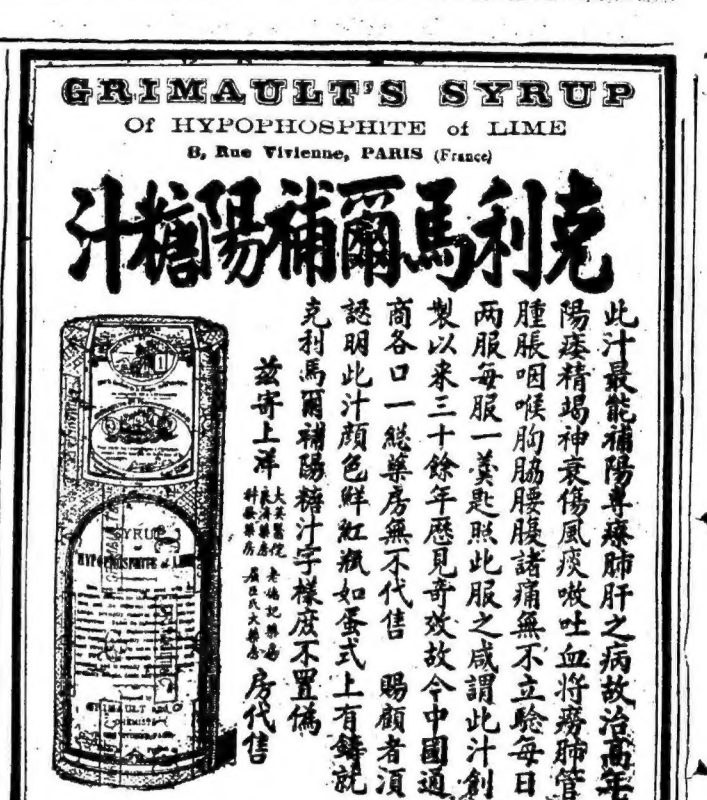 GRIMAULT'S SYRUP
Of HYPOPHOSPHITE of LIME
8, Rue Vivienne, PARIS (France)
克利馬爾補陽糖汁
此汁最能補陽專療肺肝之病故治高年
陽痿精竭神衰傷風痰嗽吐血將癆肺管
腫脹咽喉胸脇腰腹諸痛無不立驗每日
两服每服一羹匙照此服之咸謂此汁創
製以來三十餘年歷見奇效故今中國通
商各口一總藥房無不代售 賜顧者須
認明此汁顏色鮮紅瓶如蛋式上有鑄就
克利馬爾補陽糖汁字樣庶不置僞
茲寄上洋
大英醫院
老德記藥房
屈臣氏大藥房
科發藥房
房代售
SYRUP
OF
HYPOPHOSPHITE of LIME
GRIMAULT and Co
CHEMISTS